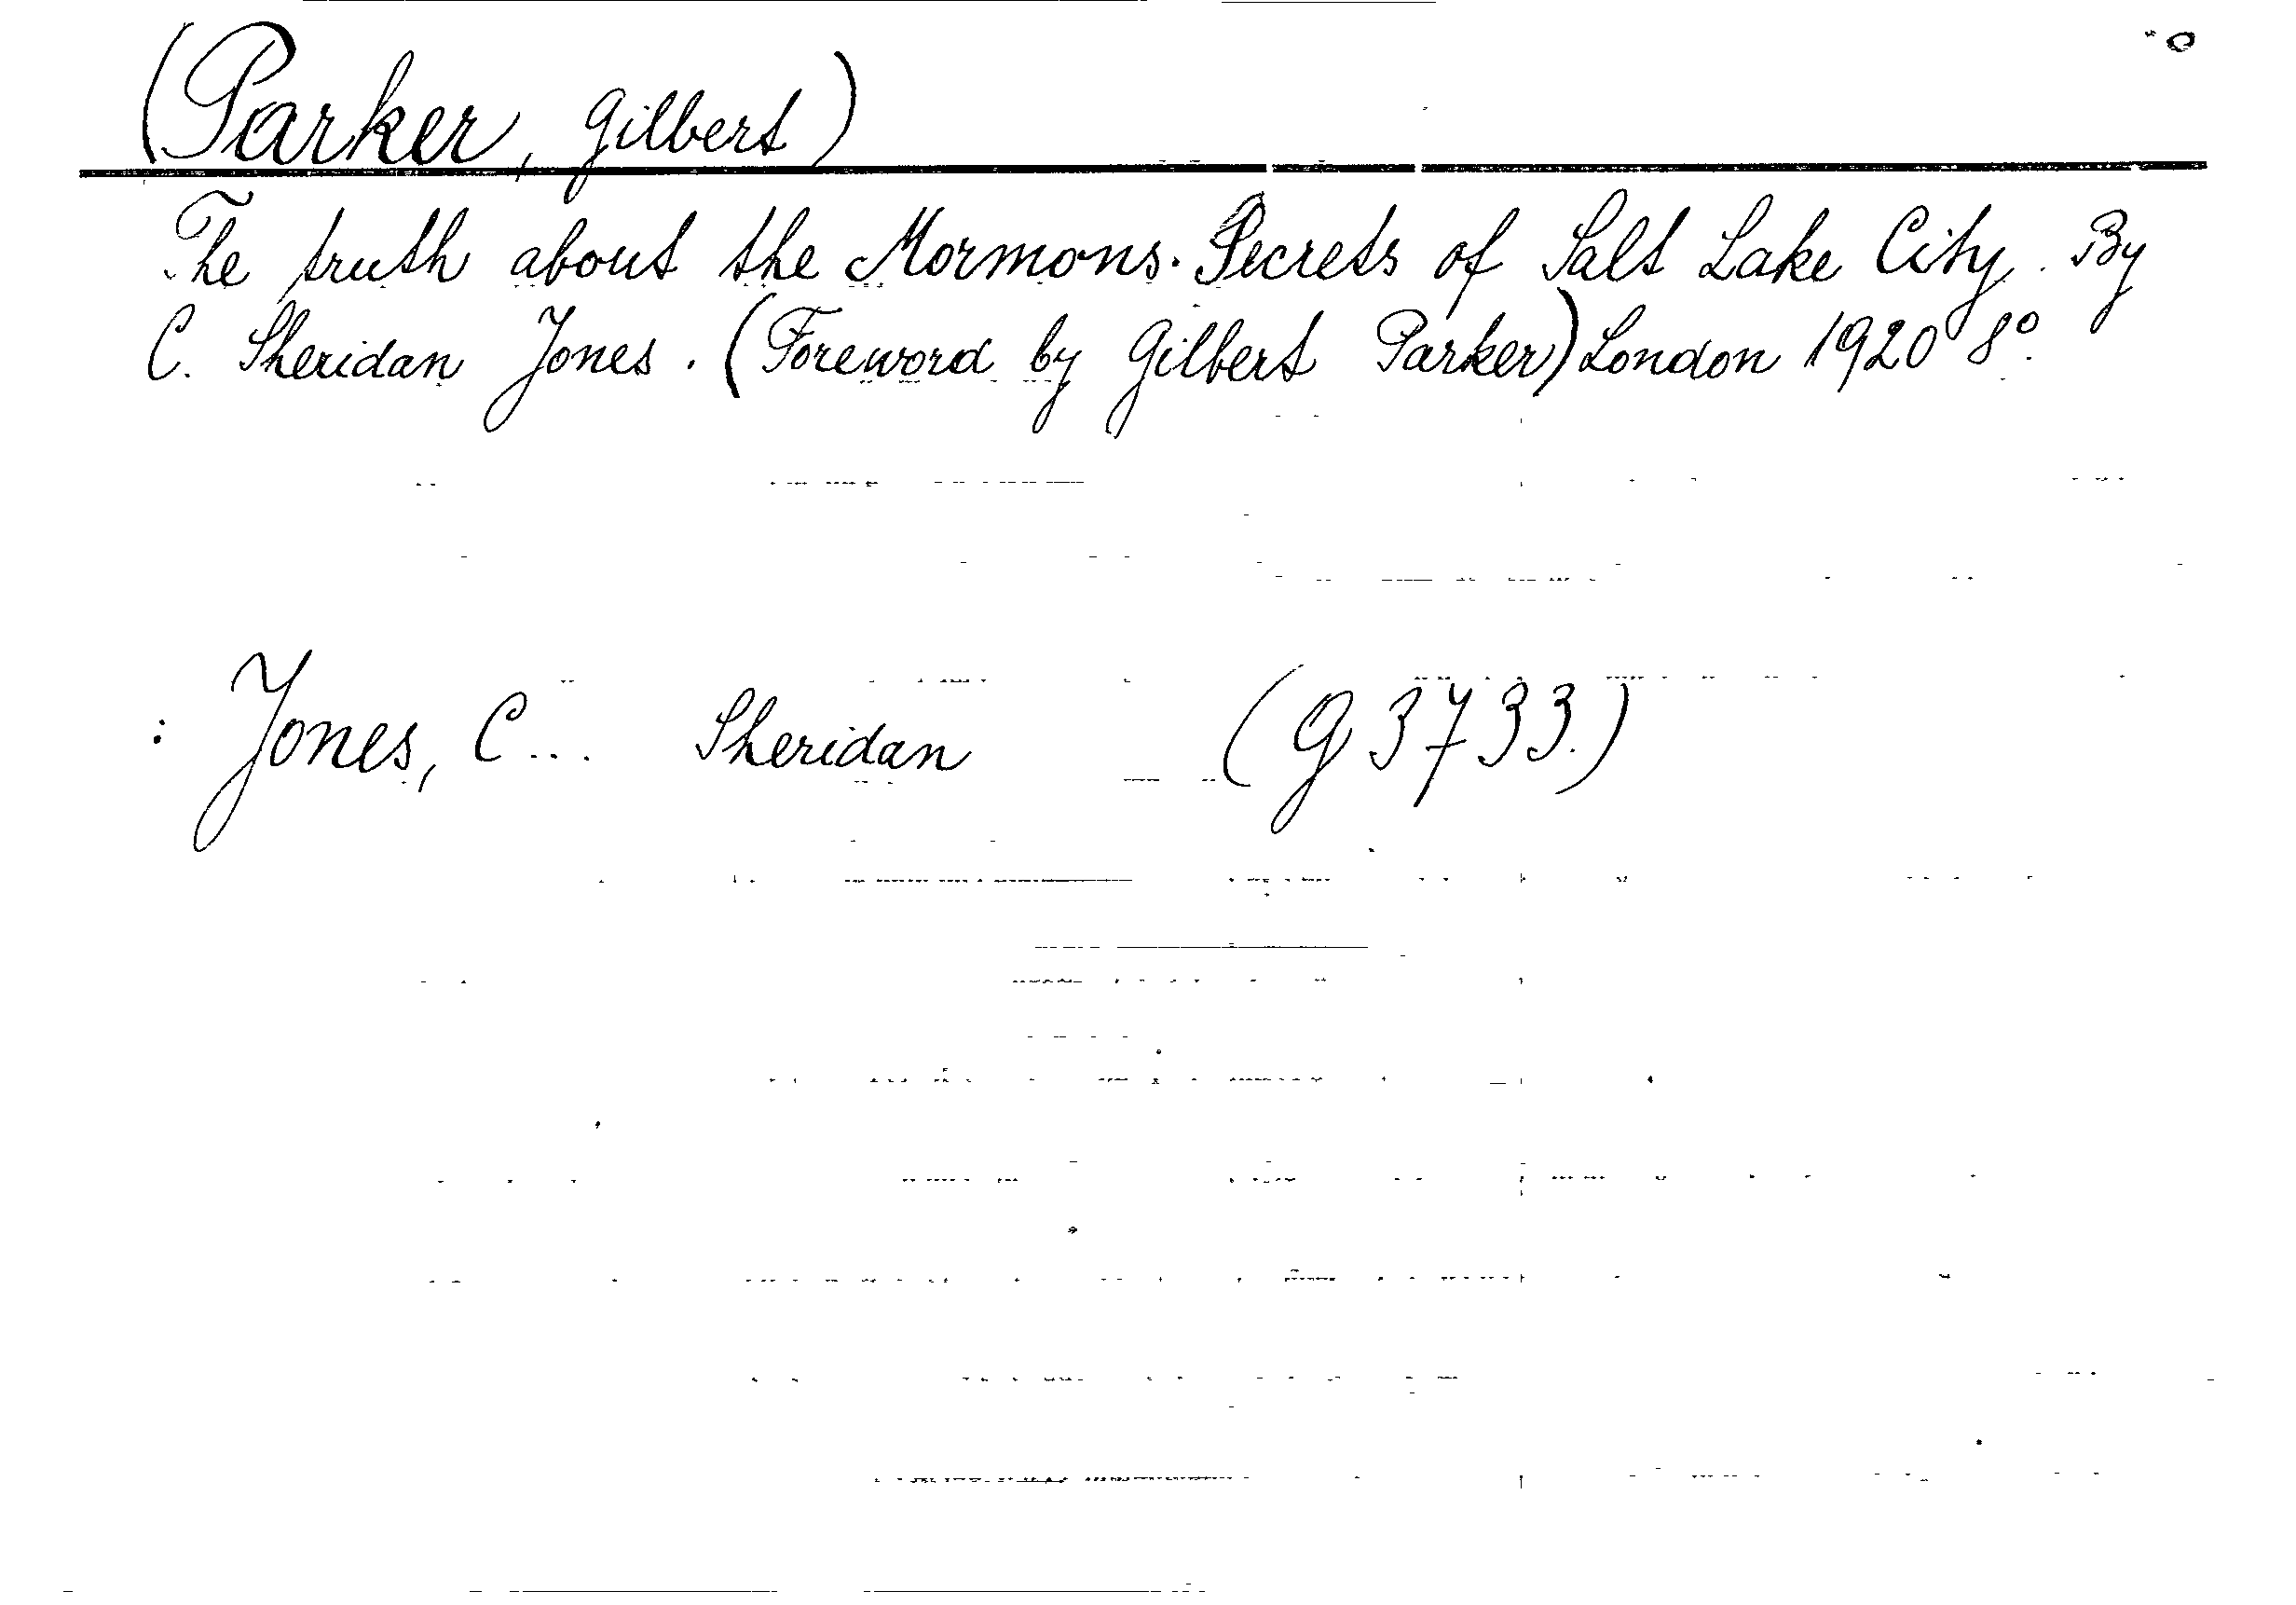 (Parker, Gilbert)
The truth about the Mormons. Secrets of Salt Lake City. By
C. Sheridan Jones. (Foreword by Gilbert Parker) London 1920 8°.
: Jones, C... Sheridan (G 3733.)